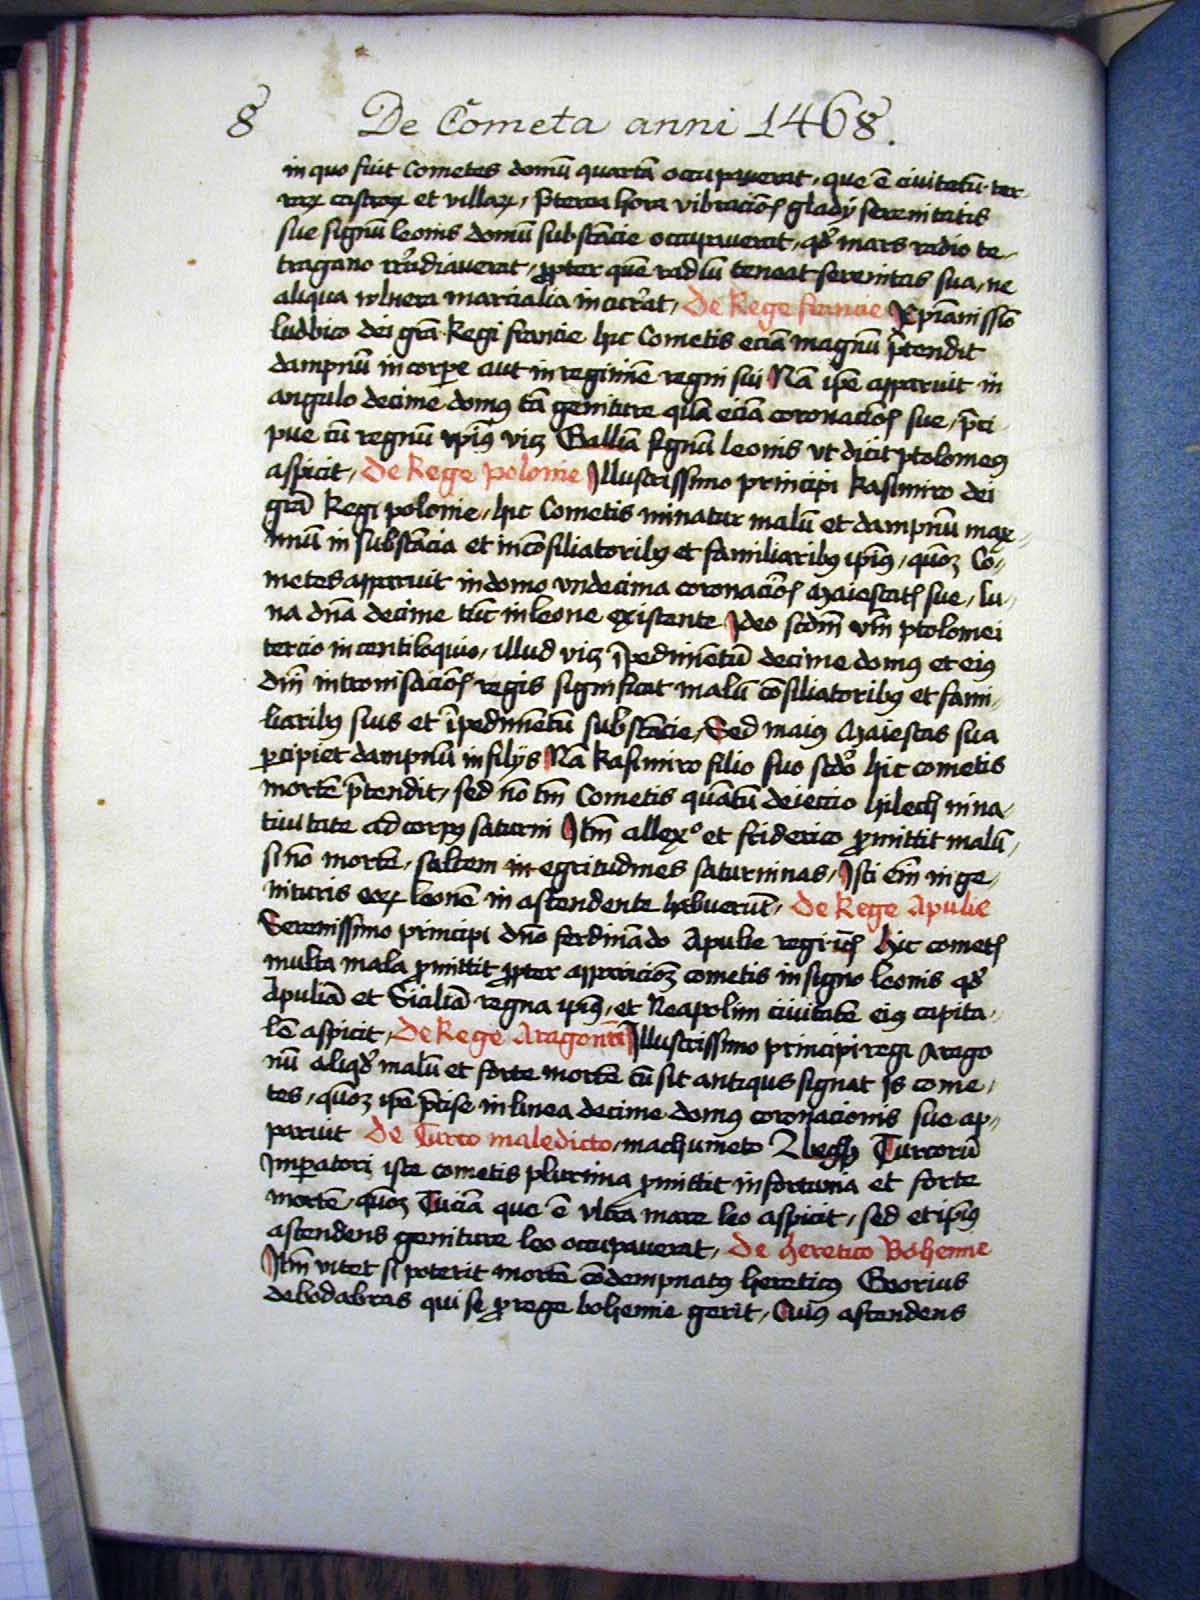 8 De Cometa anni 1468.
in quo fuit Cometes domū quartā occupaverat, que ē civitatū ter-
rarꝝ castroꝝ et villaꝝ, p̄terea hora vibracioꝭ gladij serenitatis
sue signū leonis domū substācie occupaverat, qđ mars radio te-
tragano irradiaverat, ꝓpter quē radiū teneat serenitas sua, ne
aliqua wlnera marcialia incurrat, De Rege francie Xp̄ianissio
ludvico dei gr̄a Regi francie hic Cometis eciā magnū p̄tendit
dampnū in corꝑe aut in regimīe regni sui Nā ip̄e apparuit in
angulo decime domꝰ tā geniture quā eciā coronacioꝭ sue, p̄ci-
pue cū regnū ipīꝰ vicꝫ Galliā signū leonis vt dicit ptolomeꝰ
aspicit, De Rege polonie Illustrissimo principi Kasimiro dei
gr̄a Regi polonie, hic Cometis minatur malū et dampnū max-
imū in substācia et in cōsiliatoribꝰ et familiaribꝰ ipīꝰ, quōꝫ Co-
metes apparuit in domo vndecima coronacioꝭ Maiestatꝭ sue, lu-
na dn̄a decime tūc in leone existente Ideo scdm̄ vm̄ ptolomei
tercio in centiloquio, illud vicꝫ īpedimētū decime domꝰ et eiꝰ
dn̄i intronisacioꝭ regis significat malū cōsiliatoribꝰ et fami-
liaribꝰ suis et īpedimētū substācie, Sed maiꝰ Maiestas sua
ꝑcipiet dampnū in filijs Nā Kasimiro filio suo scdo hic cometis
mortē p̄tendit, sed nō tm̄ Cometis quātū deieccio hilech in na-
tiuitate ad corpꝰ saturni Itm̄ allexo et friderico ꝓmittit malū,
si nō mortē, saltem in egritudines saturninas, Isti em̄ in ge-
nituris eoꝝ leonē in ascendente habuerūt, De Rege Apulie
Serenissimo principi dn̄o ferdinādo Apulie regi ꝛcꝭ hic cometꝭ
multa mala ꝓmittit ꝓpter apparicioꝫ cometis in signo leonis qđ
Apuliā et Siciliā regna ipīꝰ, et Neapolim civitatē eiꝰ capita-
lē aspicit, De Rege Aragonū Illustrissimo principi regi Arago
nū aliqđ malū et forte mortē cū sit antiqus signat Is come-
tes, quōꝫ ip̄e p̄cise in linea decime domꝰ coronacionis sue ap-
paruit De Turco maledicto, machumeto Turcorū
Imperatori iste cometis plurima ꝓmittit infortunia et forte
mortē, quōꝫ Turciā que ē vltra mare leo aspicit, sed et ipīꝰ
ascendens geniture leo occupaverat, De heretico Bohemie
Itm̄ vitet si poterit mortē cōdempnatꝰ hereticꝰ Georius
de bodabras qui se ꝓ rege bohemie gerit, Cuiꝰ ascendens